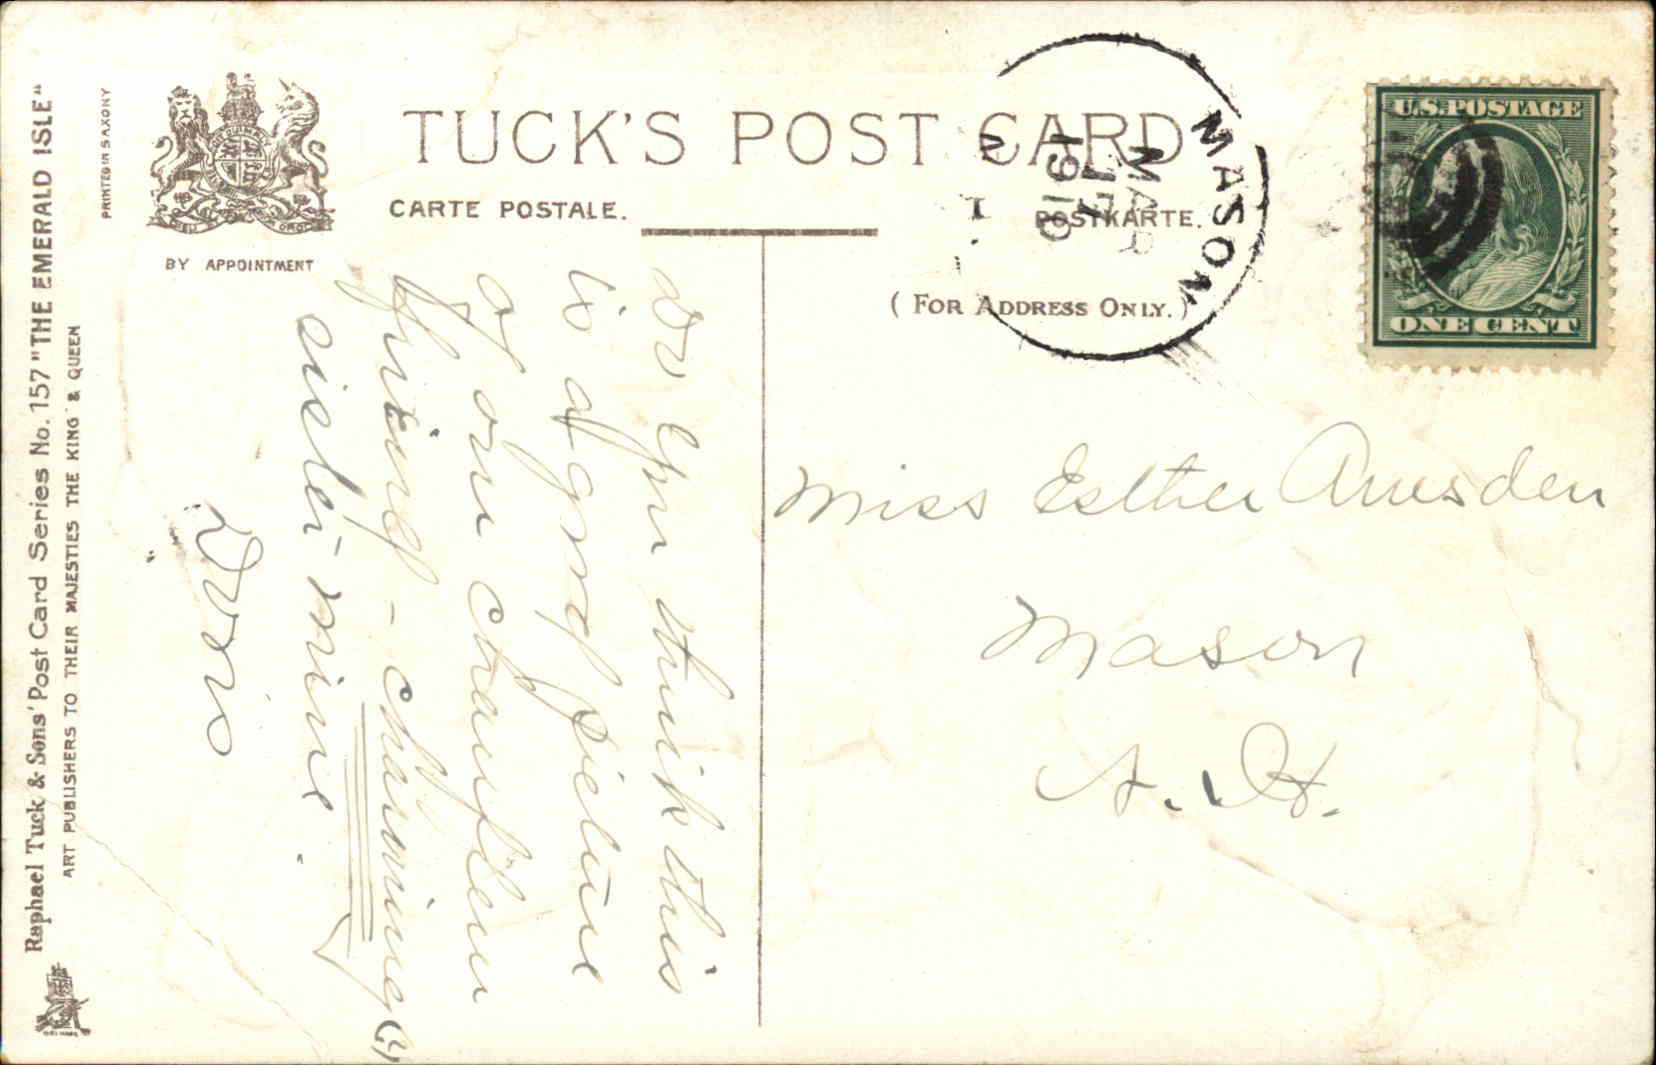 TUCK'S POST CARD
CARTE POSTALE.
POSTKARTE.
( FOR ADDRESS ONLY. )
BY APPOINTMENT
PRINTED IN SAXONY
Raphael Tuck & Sons' Post Card Series No. 157 "THE EMERALD ISLE"
ART PUBLISHERS TO THEIR MAJESTIES THE KING & QUEEN
MASON
MAR
17
1910
U.S. POSTAGE
ONE CENT
Do you think this
is a good picture
of our
- charming (?)
sister mine.
Doris
Miss Esther Amsden
Mason
N. H.